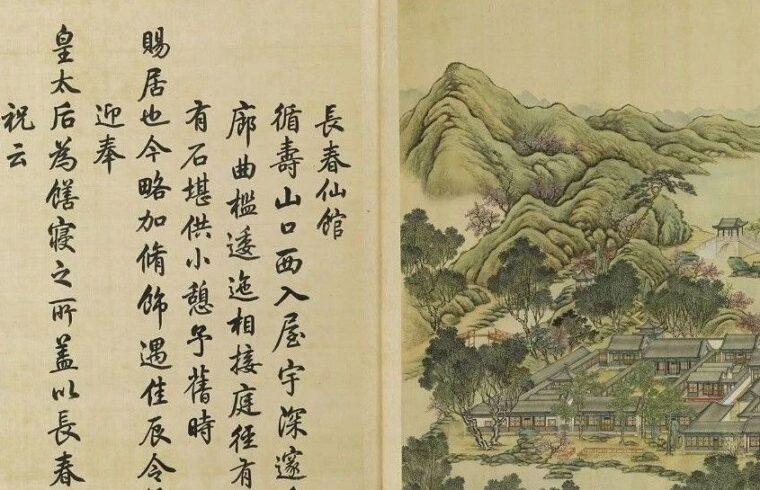 長春仙館
循壽山口西入屋宇深邃
廊曲檻逶迤相接庭徑有
有石堪供小憩予舊時
賜居也今略加脩飾遇佳辰令
迎奉
皇太后為饍寢之所蓋以長春
祝云